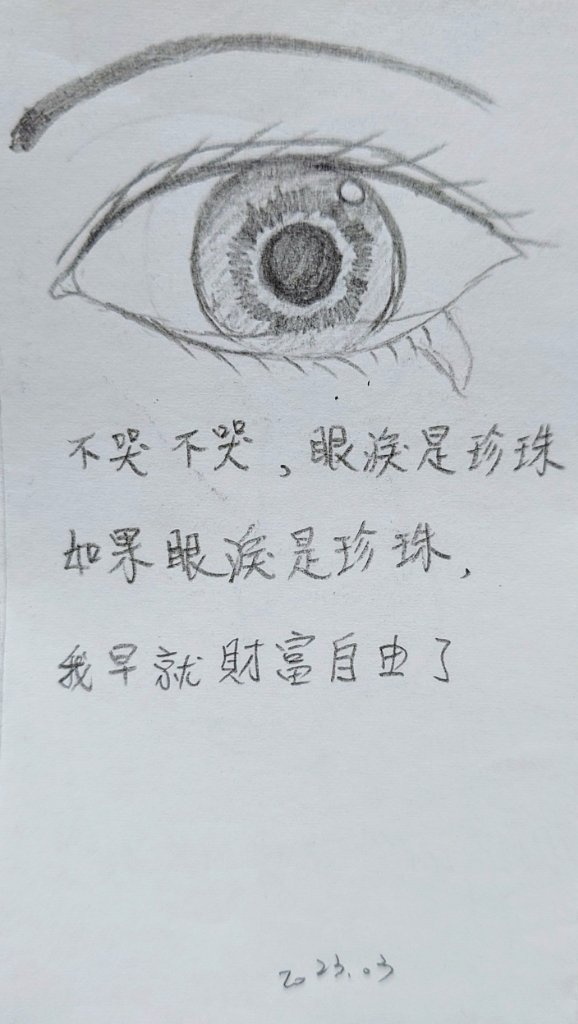 不哭不哭，眼淚是珍珠
如果眼淚是珍珠，
我早就財富自由了
2023.03